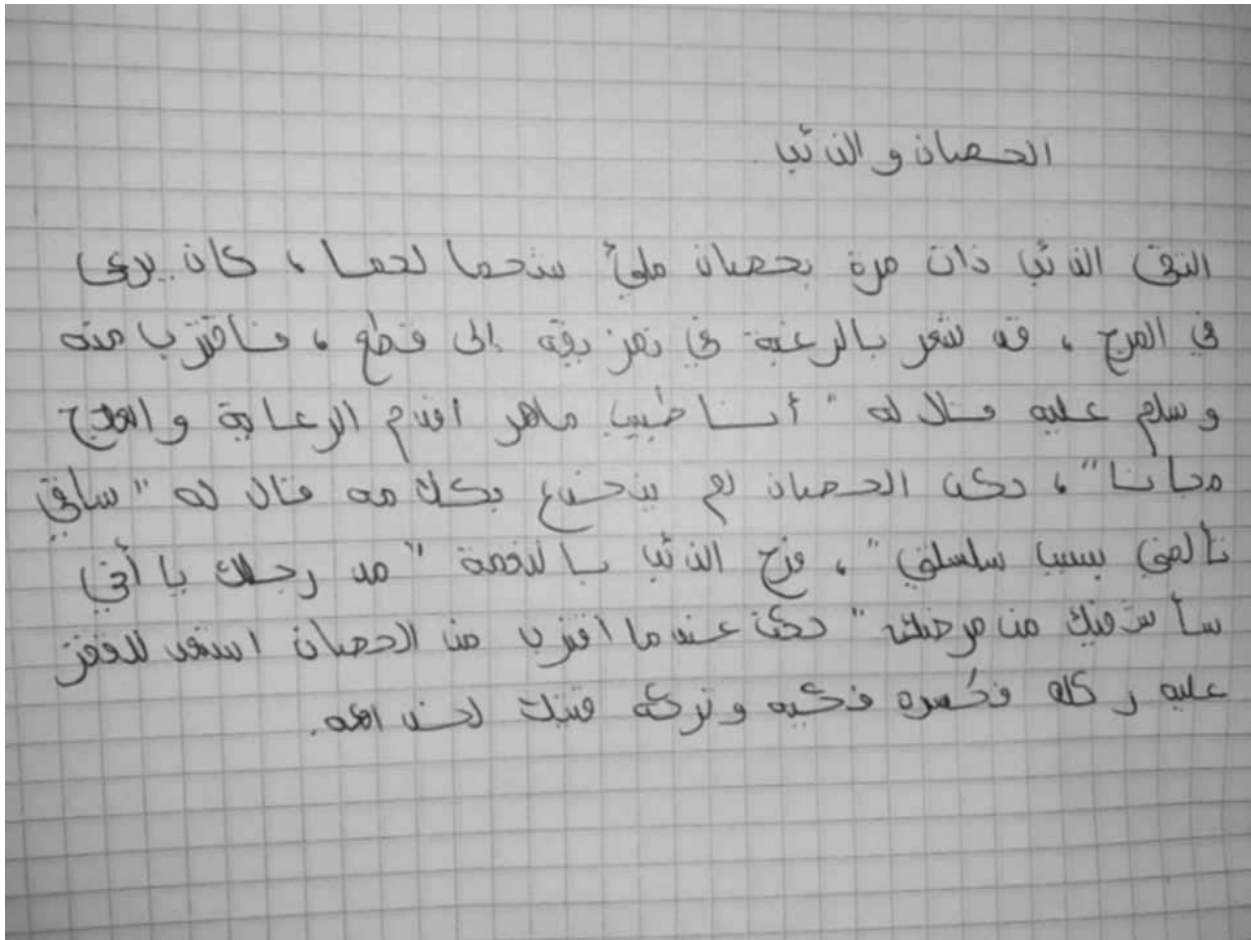 الحصان و الذئب
التقى الذئب ذات مرة بحصان مليئ شحما لحما ، كان يرعى
في المرج ، قد شعر بالرغبة في تمزيقه إلى قطع ، فاقترب منه
و سلم عليه فقال له " أنا طبيب ماهر اقدم الرعاية و العلاج
مجانا " ، لكن الحصان لم ينخدع بكلامه فقال له " ساقي
تألمني بسبب سلسلتي " ، فرح الذئب بالفرصة " مد رجلك يا أخي
سأشفيك من مرضك " لكن عندما اقترب من الحصان استعد للقفز
عليه ركله فكسره فكيه و تركه